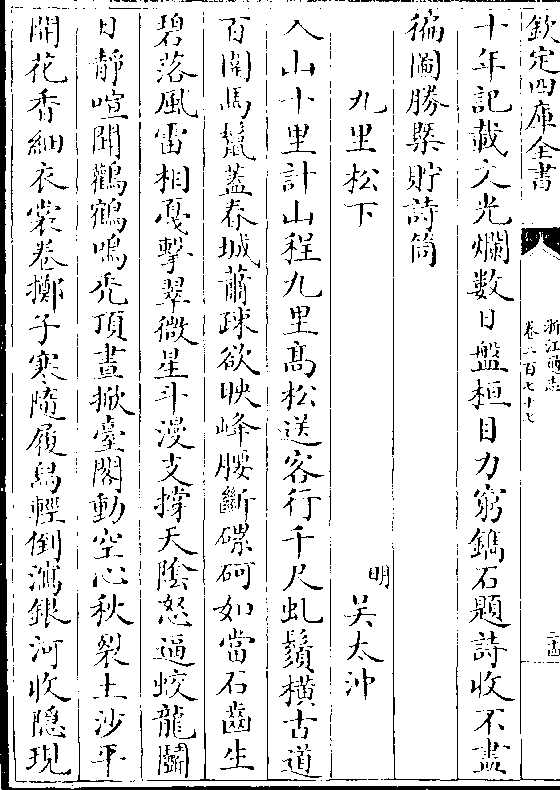 欽定四庫全書
浙江通志
卷二百七十七
十年記載文光爛數日盤桓目力窮鐫石題詩收不盡
徧圖勝槩貯詩筒
九里松下
明
吴太沖
入山十里計山程九里髙松送客行千尺虬鬚横古道
百圍馬鬛葢春城蕭踈欲映峰腰斷磥砢如當石齒生
碧落風雷相戞擊翠微星斗漫支撑天陰怒逼蛟龍鬭
日靜喧聞鸛鶴鳴秃頂晝掀臺閣動空心秋裂土沙平
開花香細衣裳卷擲子寒隨履舄輕倒瀉銀河收隱現